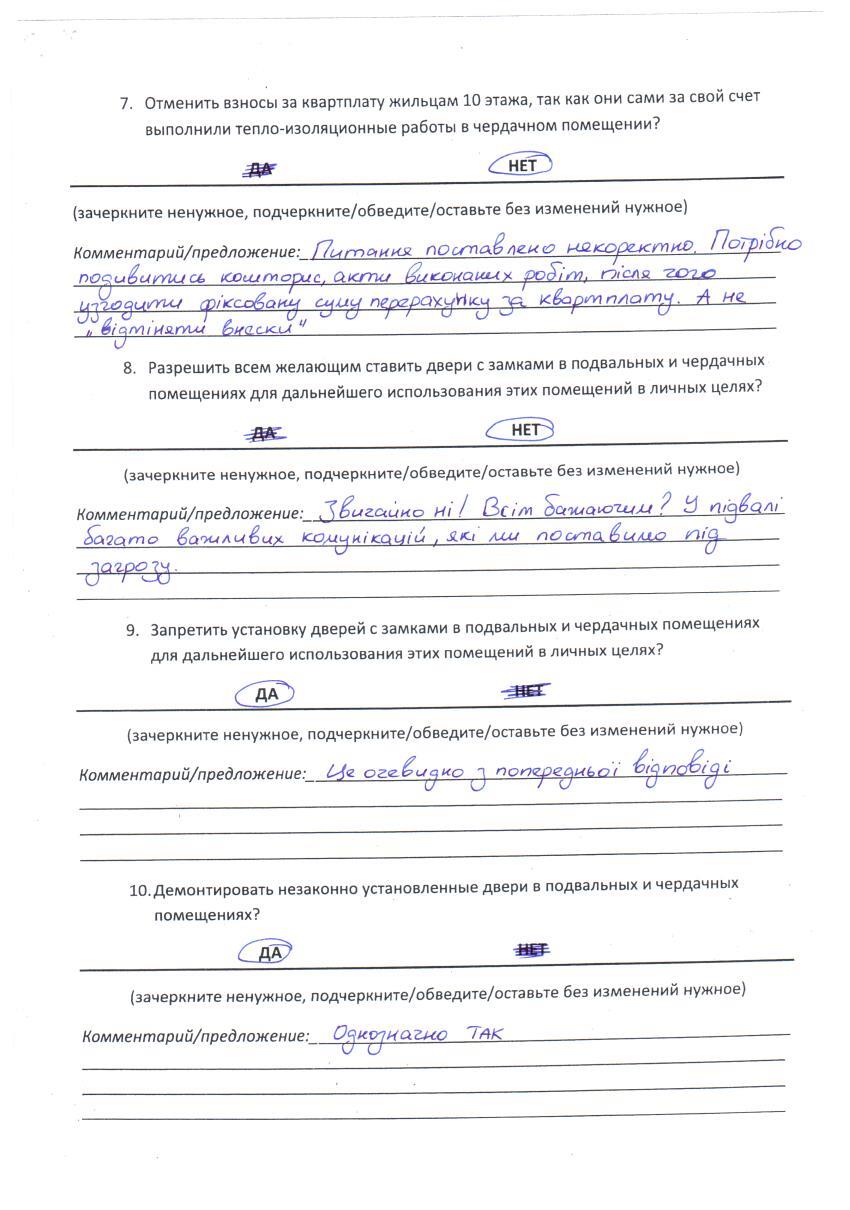 7. Отменить взносы за квартплату жильцам 10 этажа, так как они сами за свой счет
выполнили тепло-изоляционные работы в чердачном помещении?
ДА НЕТ
(зачеркните ненужное, подчеркните/обведите/оставьте без изменений нужное)
Комментарий/предложение: Питання поставлено некоректно. Потрібно
подивитись кошторис, акти виконаних робіт, після чого
узгодити фіксовану суму перерахунку за квартплату. А не
„відміняти внески"
8. Разрешить всем желающим ставить двери с замками в подвальных и чердачных
помещениях для дальнейшего использования этих помещений в личных целях?
ДА НЕТ
(зачеркните ненужное, подчеркните/обведите/оставьте без изменений нужное)
Комментарий/предложение: Звичайно ні! Всім бажаючим? У підвалі
багато важливих комунікацій, які ми поставимо під
загрозу.
9. Запретить установку дверей с замками в подвальных и чердачных помещениях
для дальнейшего использования этих помещений в личных целях?
ДА НЕТ
(зачеркните ненужное, подчеркните/обведите/оставьте без изменений нужное)
Комментарий/предложение: Це очевидно з попередньої відповіді
10. Демонтировать незаконно установленные двери в подвальных и чердачных
помещениях?
ДА НЕТ
(зачеркните ненужное, подчеркните/обведите/оставьте без изменений нужное)
Комментарий/предложение: Однозначно ТАК